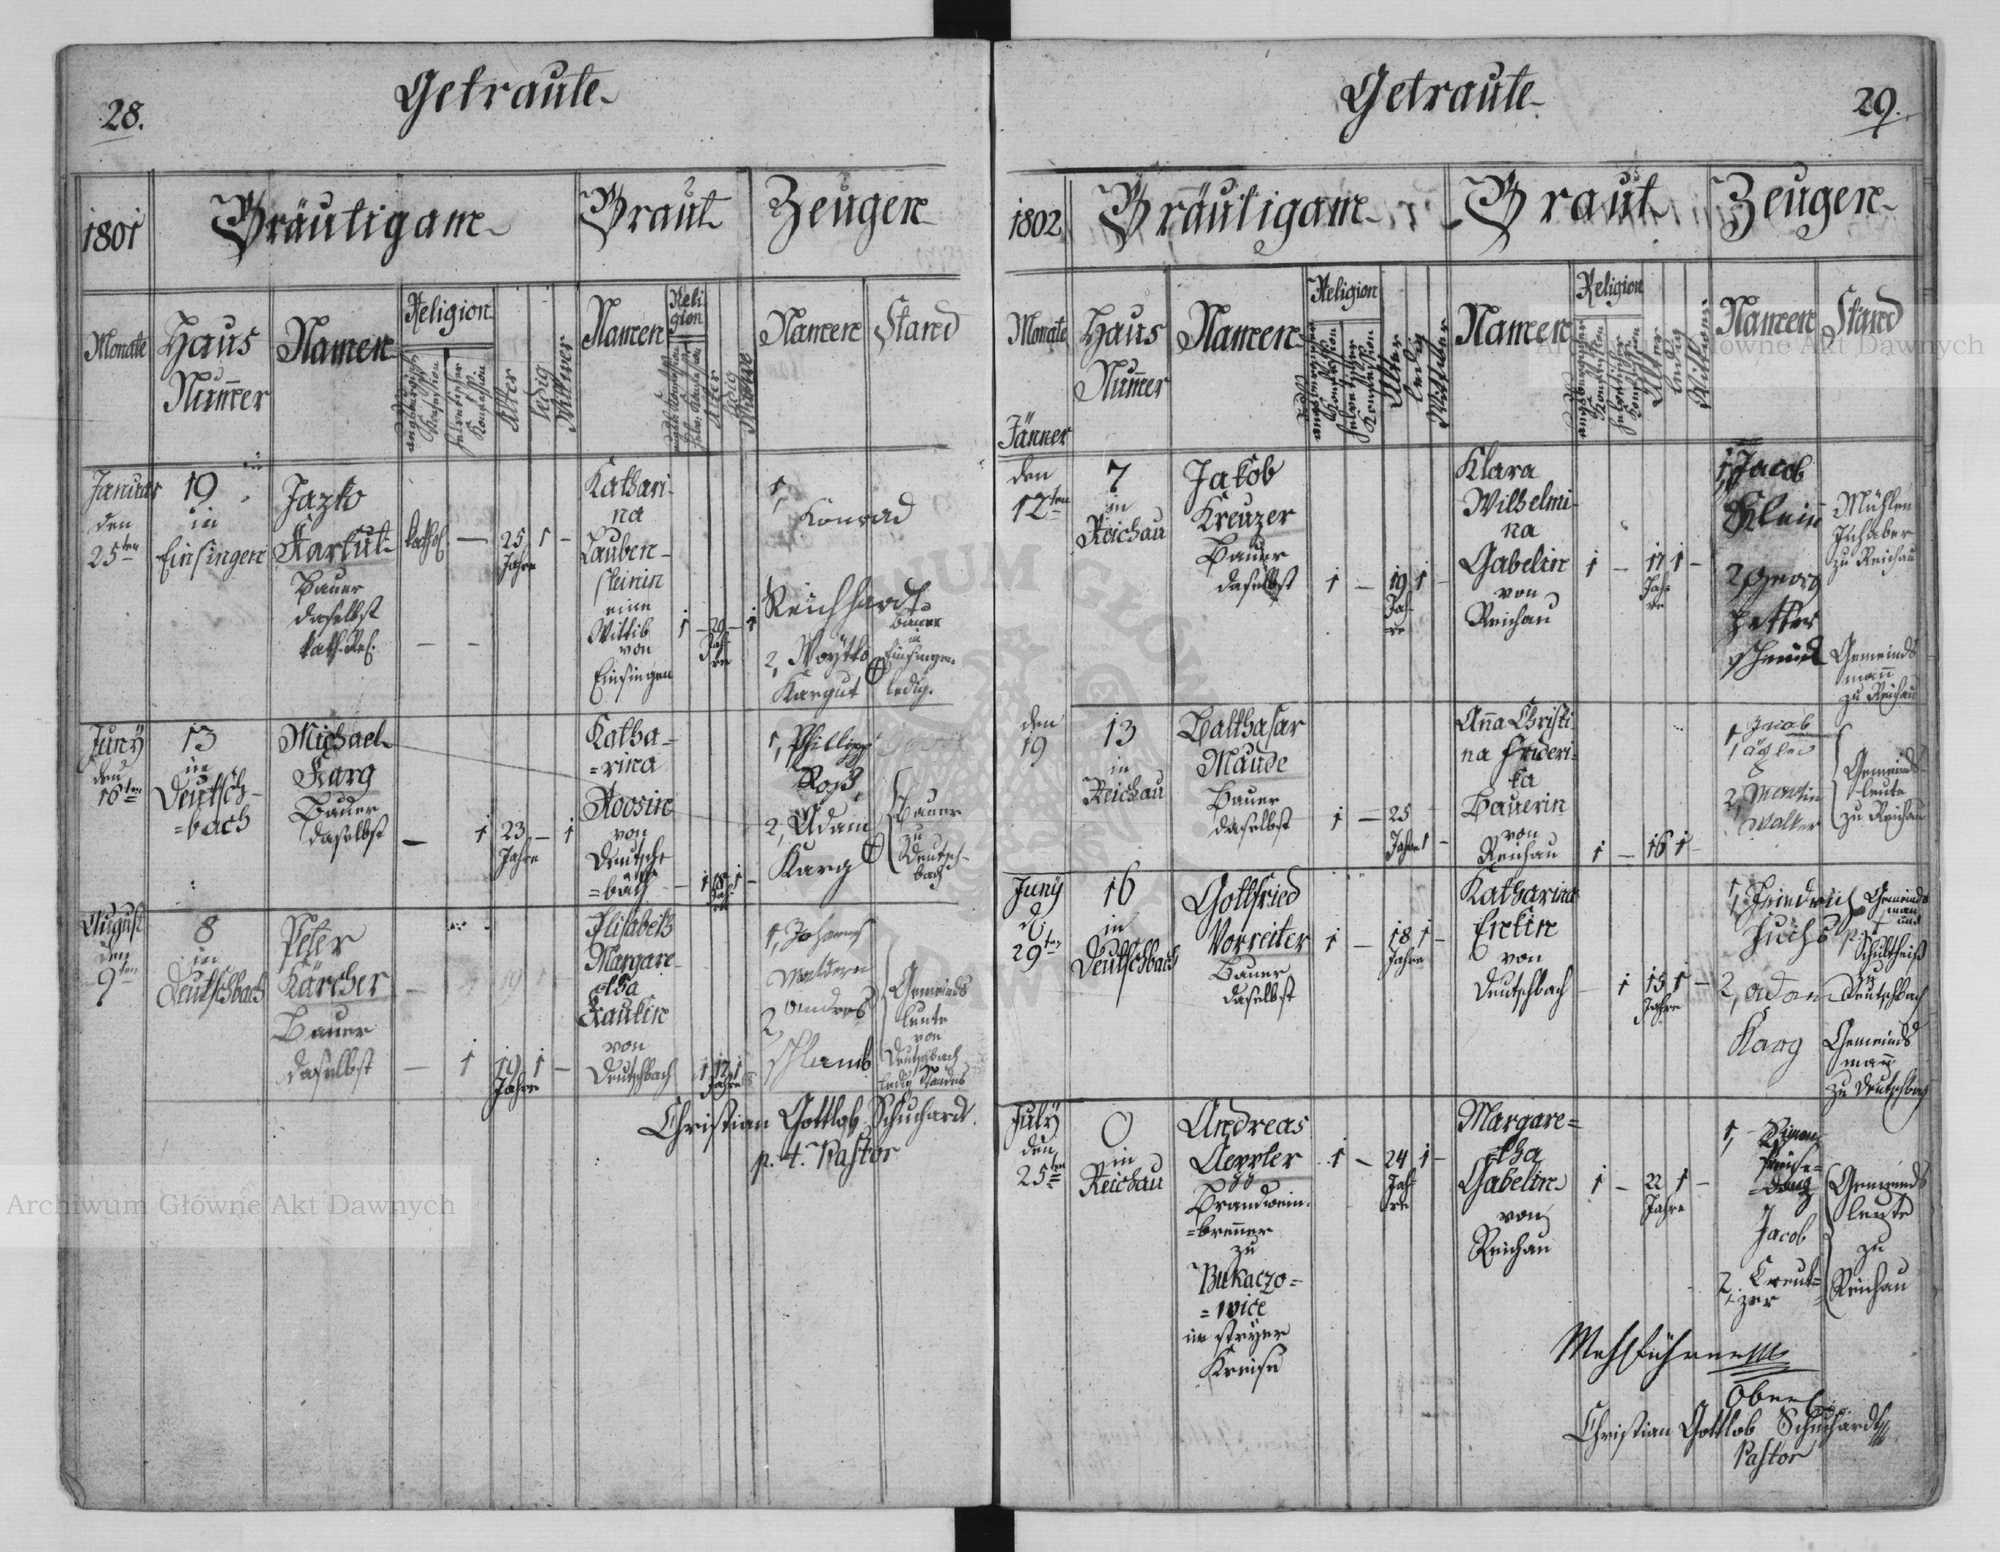 28.
Getraute
1801
Bräutigam
Braut
Zeugen
Monate
Haus
Num̅er
Namen
Religion
Alter
ledig
Wittwer
Namen
Reli
gion
Alter
ledig
Namen
Stand
Januar
den
25ten
19
in
Einsingen
Jazko
Karkut
Bauer
daselbst
kath. Rel.
kathol.
—
25
Jahre
1
–
Kathari-
na
Lauben-
steinin
eine
Wittib
von
Einsingen
1
–
29
Jah-
re
–
1
1,
Konrad
Reichhardt
2, Woytko
Kargut
Bauer
in
Einsingen
ledig.
Juny
den
16ten
13
in
Deutsch-
=bach
Michael
Karg
Bauer
daselbst
–
1
23
Jahre
–
1
Katha-
=rina
Roosin
von
Deutsch-
=bach
–
1
18
1
–
1, Philipp
Roß,
2, Adam
Karg
Bauer
zu
Deutsch-
bach
August
den
9ten
8
in
Deutschbach
Peter
Kärcher
Bauer
daselbst
–
1
19
Jahre
1
–
Elisabeth
Margare-
tha
Kaulin
von
Deutschbach
1
17
Jahre
1
1, Johannes
2, Andres
Schlamb
Gemeinds
leute
von
Deutschbach
ledig Standes
Christian Gottlob Schuchardt.
p. t. Pastor
29.
Getraute
1802
Bräutigam
Braut
Zeugen
Monate
Haus
Num̅er
Namen
Religion
Alter
ledig
Wittwer
Namen
Religion
Alter
ledig
Wittwe
Namen
Stand
Jänner
den
12ten
7
in
Reichau
Jakob
Kreuzer
Bauer
daselbst
1
–
19
Ja-
re
1
–
Klara
Wilhelmi-
na
Gabelin
von
Reichau
1
–
17
Jah-
re
1
–
1, Jacob
Klein
2, Georg
Hetter
schmid
Mühlen
Inhaber
zu Reichau
Gemeinds
man̅
zu Reichau
den
19
13
in
Reichau
Balthasar
Maude
Bauer
daselbst
1
–
25
Jahre
1
–
An̅a Christi-
na Frideri-
ka
Bauerin
von
Reichau
1
–
16
1
–
1, Jacob
2, Martin
Walter
Gemeinds-
leute
zu Reichau
Juny
d.
29ten
16
in
Deutschbach
Gottfried
Vorreiter
Bauer
daselbst
1
–
18
Jahre
1
–
Katharina
Enkin
von
Deutschbach
–
1
15
Jahre
1
–
1, Friedrich
Fuchs
2, Adam
Karg
Gemeinds
man
und
p. t.
Schultheiß
zu
Deutschbach
Gemeinds
man̅
zu Deutschbach
July
den
25ten
0
in
Reichau
Andreas
Aeppler
Brandwein-
=bren̅er
zu
Bukaczo=
=wice
im Stryer
Kreise
1
–
24
Jah-
re
1
–
Margare=
tha
Gabelin
von
Reichau
1
–
22
Jahre
1
–
1, Simon
Jacob
2, Kreut-
zer
Gemeinds
leute
zu
Reichau
Christian Gottlob Schuchardt
Pastor
Archiwum Główne Akt Dawnych
Archiwum Główne Akt Dawnych